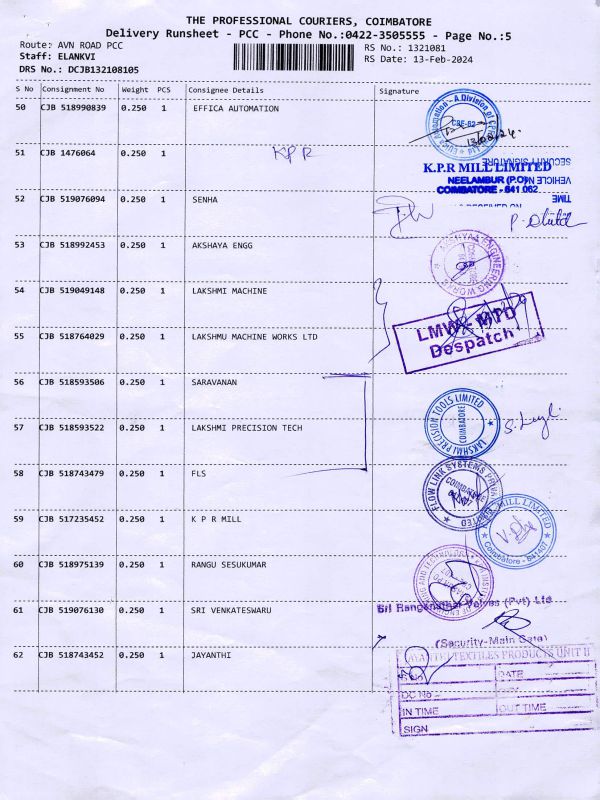 THE PROFESSIONAL COURIERS, COIMBATORE
Delivery Runsheet - PCC - Phone No.:0422-3505555 - Page No.:5
Route: AVN ROAD PCC
RS No.: 1321081
Staff: ELANKVI
RS Date: 13-Feb-2024
DRS No.: DCJB132108105
S No Consignment No Weight PCS Consignee Details Signature
50 CJB 518990839 0.250 1 EFFICA AUTOMATION
CBE-62
51 CJB 1476064 0.250 1 KPR
SECURITY SIGNATURE
K.P.R MILL LIMITED
VEHICLE NO
NEELAMBUR (P.O)
COIMBATORE - 641 062
TIME
52 CJB 519076094 0.250 1 SENHA
53 CJB 518992453 0.250 1 AKSHAYA ENGG
AKSHYA ENGINEERING WORKS
54 CJB 519049148 0.250 1 LAKSHMI MACHINE
LMW - MTD
Despatch
55 CJB 518764029 0.250 1 LAKSHMU MACHINE WORKS LTD
56 CJB 518593506 0.250 1 SARAVANAN
57 CJB 518593522 0.250 1 LAKSHMI PRECISION TECH
LAKSHMI PRECISION TOOLS LIMITED
COIMBATORE
58 CJB 518743479 0.250 1 FLS
FLOW LINK SYSTEMS PRIVATE LIMITED
COIMBATORE
59 CJB 517235452 0.250 1 K P R MILL
MILL LIMITED
Coimbatore - 641407
60 CJB 518975139 0.250 1 RANGU SESUKUMAR
61 CJB 519076130 0.250 1 SRI VENKATESWARU
Sri Ranganathar Valves (Pvt) Ltd
(Security-Main Gate)
62 CJB 518743452 0.250 1 JAYANTHI
TEXTILES PRODUCTS UNIT II
DATE
DC No
IN TIME OUT TIME
SIGN